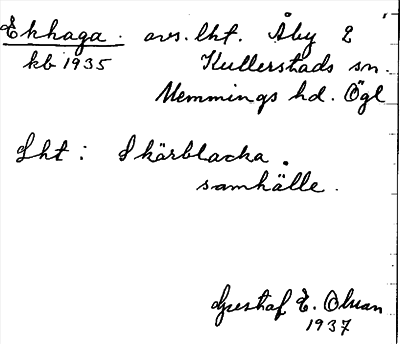 Ekhaga. avs. lht. Åby 2
kb 1935 Kullerstads sn.
Memmings hd. Ögl
Lht: Skärblacka.
samhälle.
Gustaf E. Olson
1937